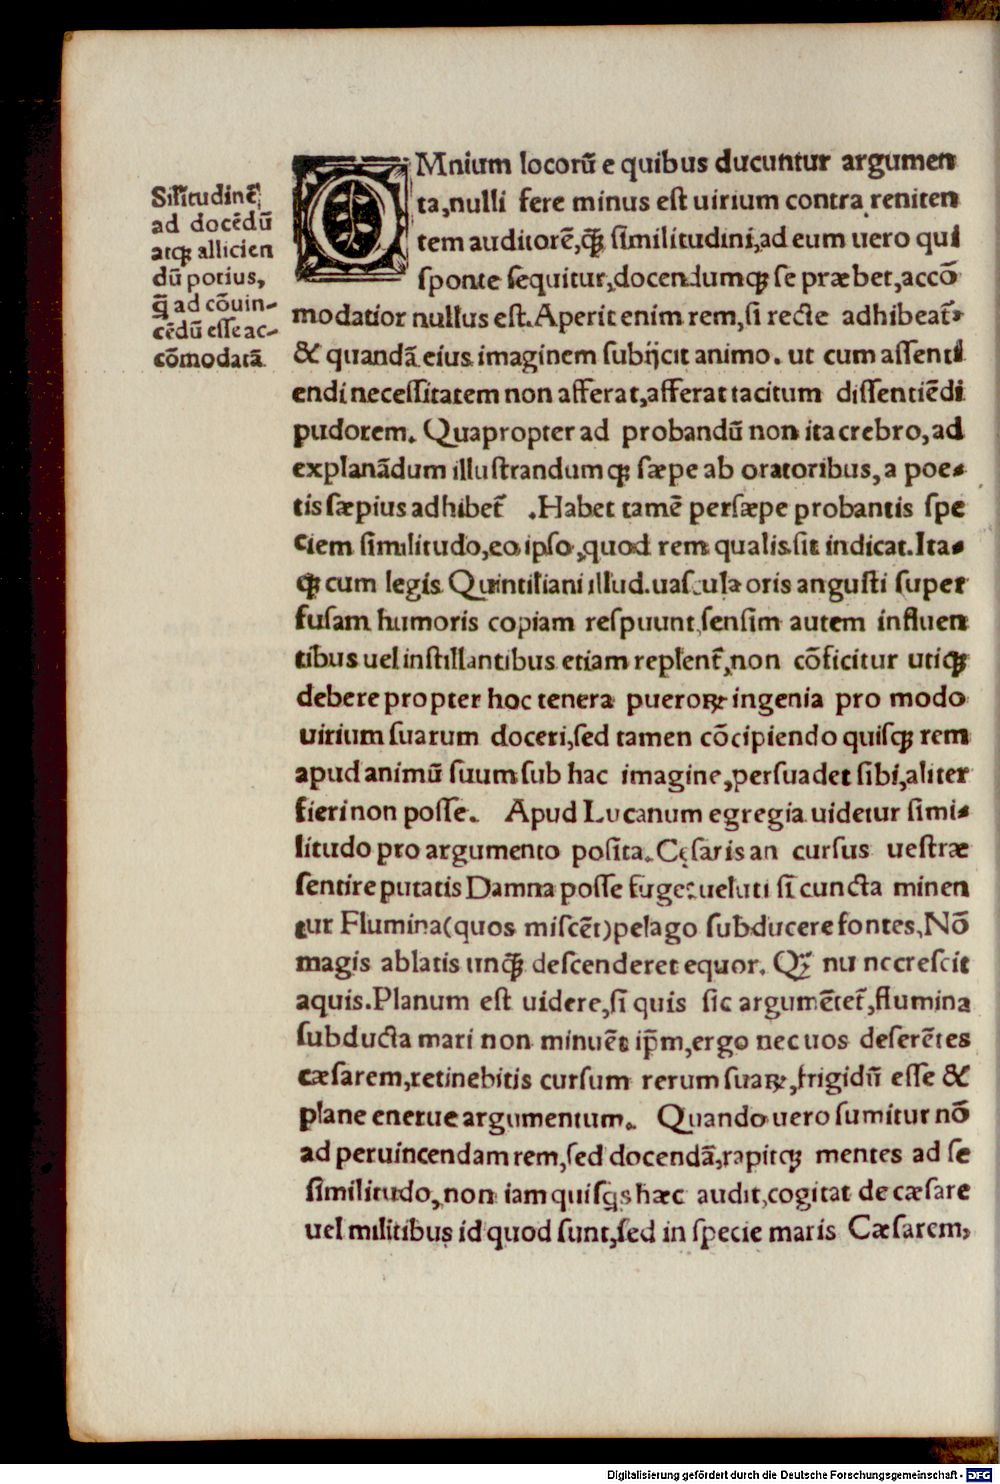 Sil̃itudinẽ
ad docẽdũ
atq̃ allicien
dũ potius,
q̃ ad cõuin-
cẽdũ esse ac-
cõmodatã
OMnium locorũ e quibus ducuntur argumen
ta, nulli fere minus est uirium contra reniten
tem auditorẽ, q̃ꝫ similitudini, ad eum uero qui
sponte sequitur, docendumqꝫ se præbet, accõ
modatior nullus est. Aperit enim rem, si recte adhibeat̃,
& quandã eius imaginem subijcit animo. ut cum assenti
endi necessitatem non afferat, afferat tacitum dissentiẽdi
pudorem. Quapropter ad probandũ non ita crebro, ad
explanãdum illustrandumqꝫ sæpe ab oratoribus, a poe-
tis sæpius adhibet̃ . Habet tamẽ persæpe probantis spe
ciem similitudo, eo ipso, quod rem qualis sit indicat. Ita-
qꝫ cum legis Quintiliani illud. uascula oris angusti super
fusam humoris copiam respuunt, sensim autem influen
tibus uel instillantibus etiam replent̃, non cõficitur utiqꝫ
debere propter hoc tenera pueroꝝ ingenia pro modo
uirium suarum doceri, sed tamen cõcipiendo quisqꝫ rem
apud animũ suum sub hac imagine, persuadet sibi, aliter
fieri non posse. Apud Lucanum egregia uidetur simi-
litudo pro argumento posita. Cęsaris an cursus uestræ
sentire putatis Damna posse fuge: ueluti si cuncta minen
tur Flumina (quos miscẽt) pelago subducere fontes, Nõ
magis ablatis unq̃ꝫ descenderet equor. Qꝫ̃ nu nc crescit
aquis. Planum est uidere, si quis sic argumẽtet̃, flumina
subducta mari non minuẽt ip̃m, ergo nec uos deserẽtes
cæsarem, retinebitis cursum rerum suaꝝ, frigidũ esse &
plane enerue argumentum. Quando uero sumitur nõ
ad peruincendam rem, sed docendã, rapitqꝫ mentes ad se
similitudo, non iam quisq̃s hæc audit, cogitat de cæsare
uel militibus id quod sunt, sed in specie maris Cæsarem,
Digitalisierung gefördert durch die Deutsche Forschungsgemeinschaft - DFG